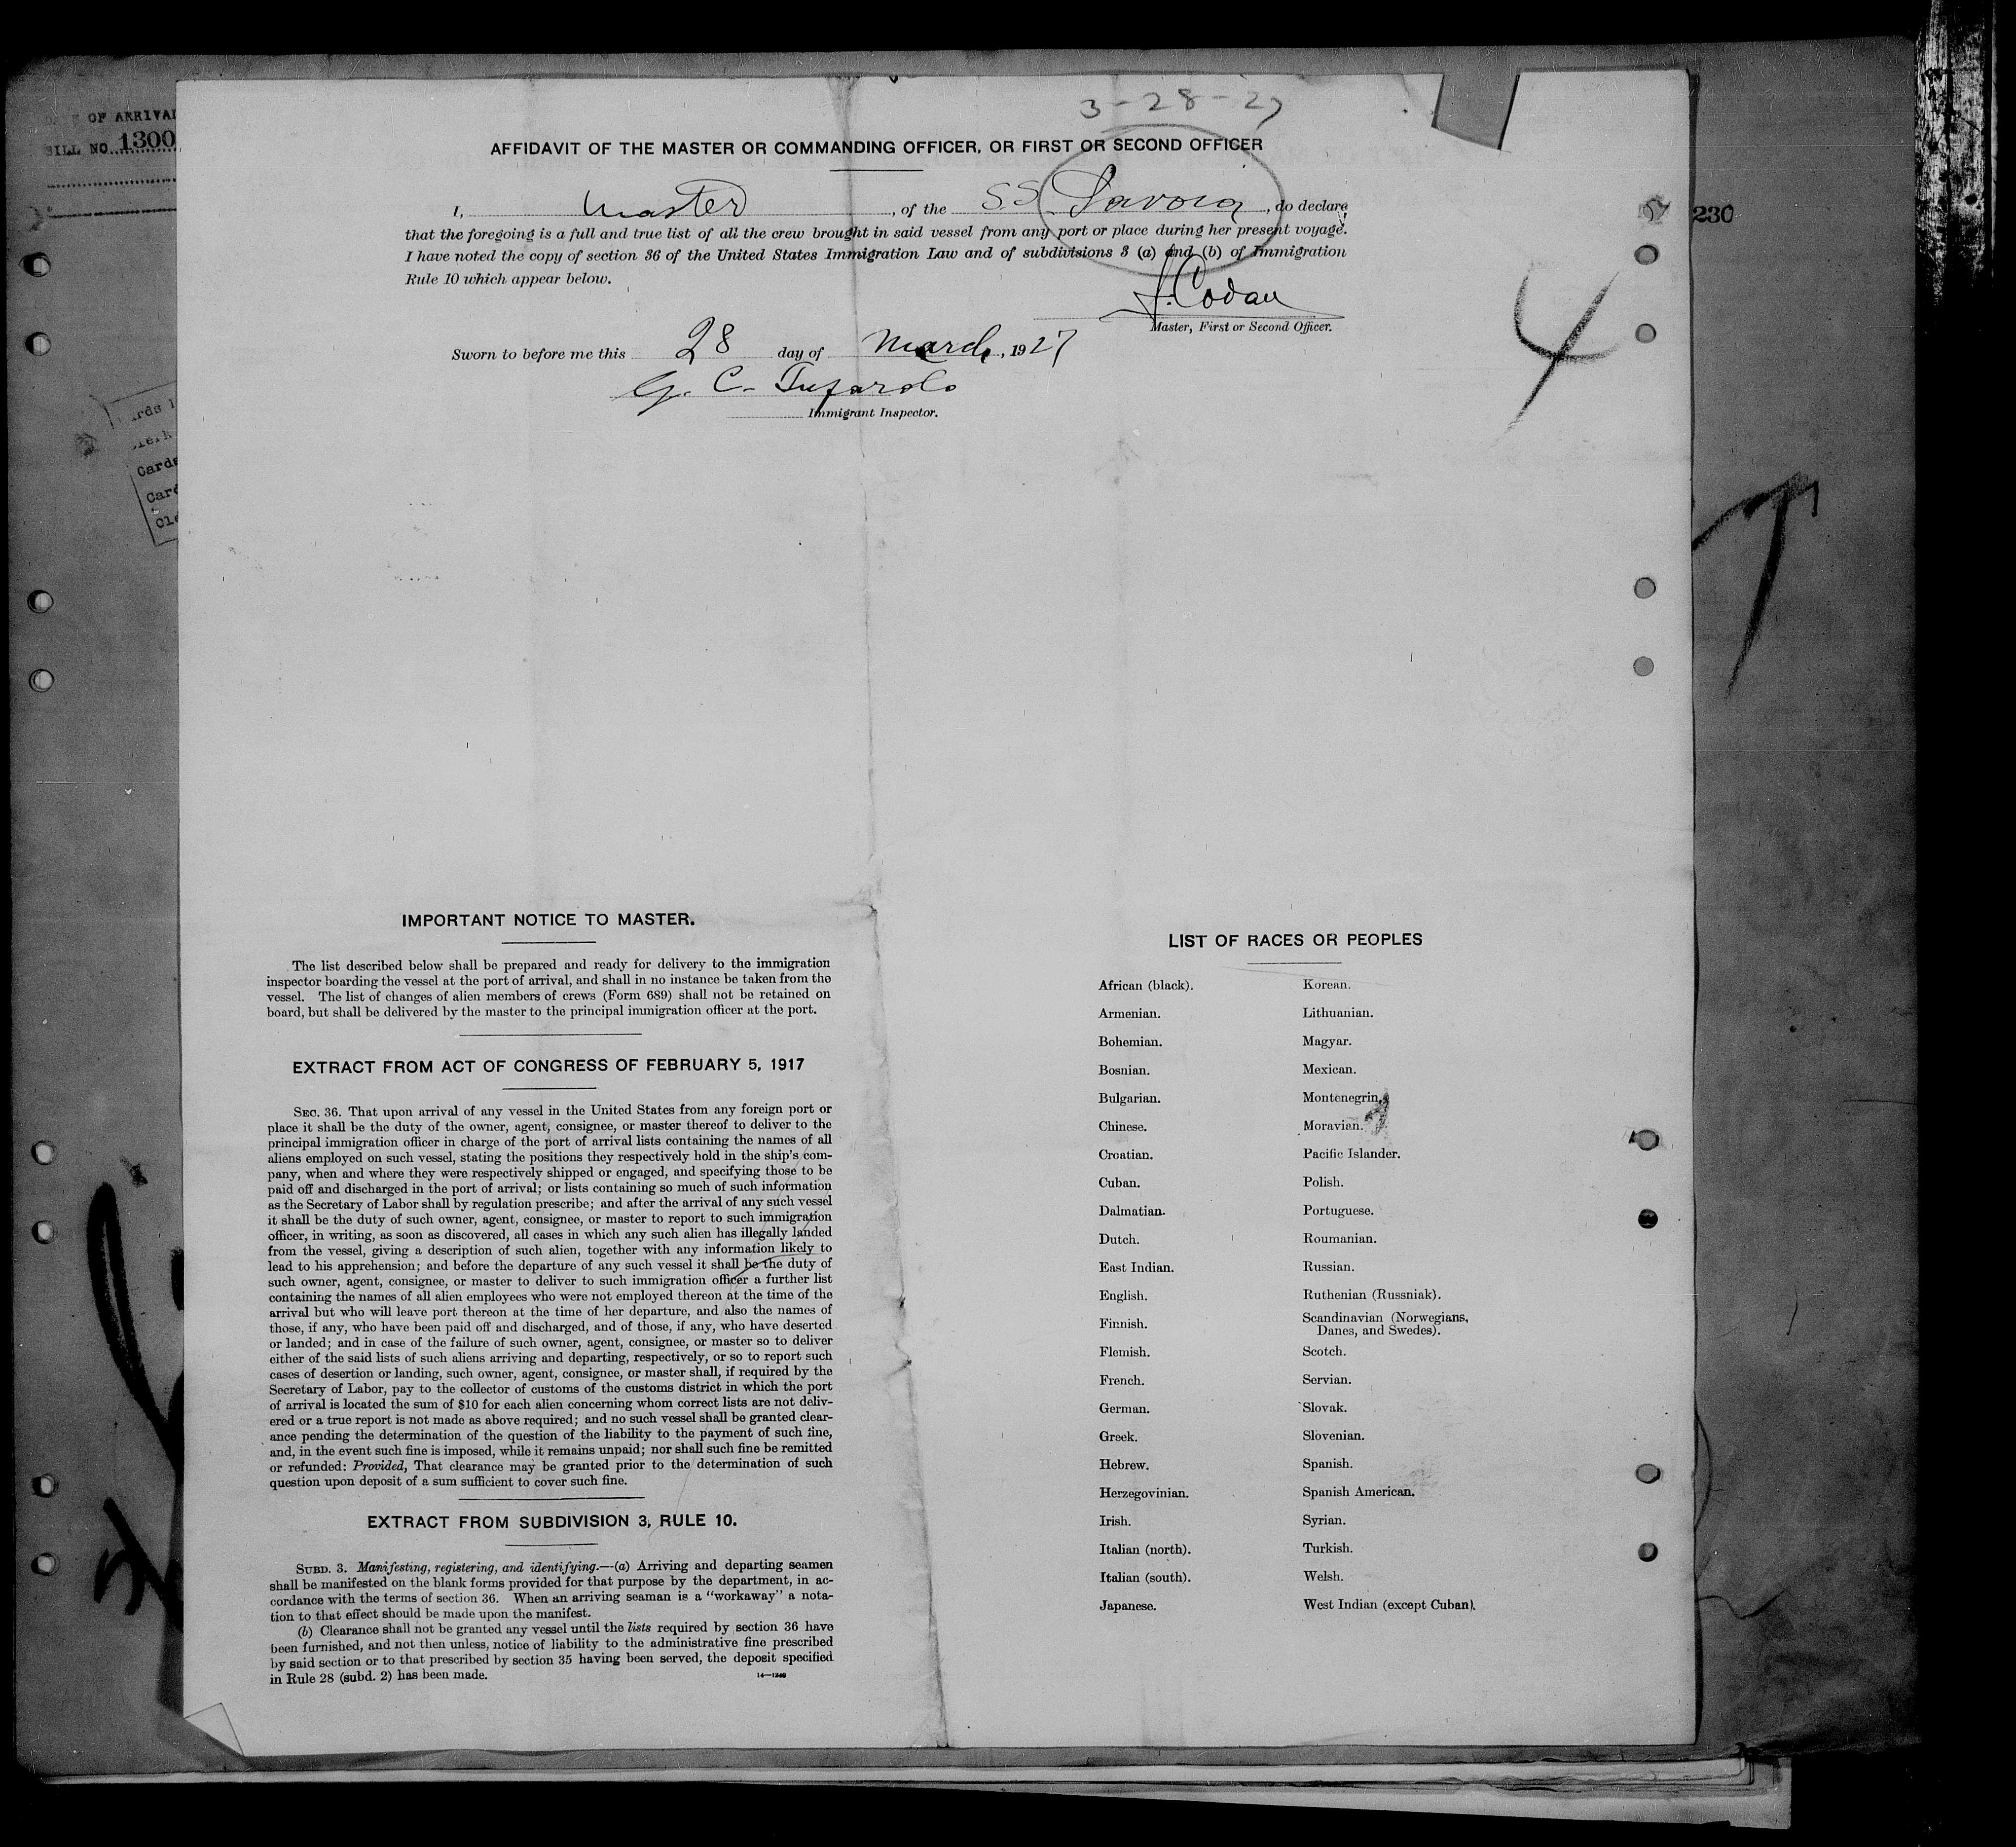 3-28-27
OF ARRIVAL
BILL NO. 1300
230
AFFIDAVIT OF THE MASTER OR COMMANDING OFFICER, OR FIRST OR SECOND OFFICER
I, Master, of the S.S. Savoia, do declare
that the foregoing is a full and true list of all the crew brought in said vessel from any port or place during her present voyage.
I have noted the copy of section 36 of the United States Immigration Law and of subdivisions 3 (a) and (b) of Immigration
Rule 10 which appear below.
Master, First or Second Officer.
Sworn to before me this 28 day of March, 1927
G. C.
Immigrant Inspector.
4
Cards
IMPORTANT NOTICE TO MASTER.
The list described below shall be prepared and ready for delivery to the immigration
inspector boarding the vessel at the port of arrival, and shall in no instance be taken from the
vessel. The list of changes of alien members of crews (Form 689) shall not be retained on
board, but shall be delivered by the master to the principal immigration officer at the port.
EXTRACT FROM ACT OF CONGRESS OF FEBRUARY 5, 1917
SEC. 36. That upon arrival of any vessel in the United States from any foreign port or
place it shall be the duty of the owner, agent, consignee, or master thereof to deliver to the
principal immigration officer in charge of the port of arrival lists containing the names of all
aliens employed on such vessel, stating the positions they respectively hold in the ship's com-
pany, when and where they were respectively shipped or engaged, and specifying those to be
paid off and discharged in the port of arrival; or lists containing so much of such information
as the Secretary of Labor shall by regulation prescribe; and after the arrival of any such vessel
it shall be the duty of such owner, agent, consignee, or master to report to such immigration
officer, in writing, as soon as discovered, all cases in which any such alien has illegally landed
from the vessel, giving a description of such alien, together with any information likely to
lead to his apprehension; and before the departure of any such vessel it shall be the duty of
such owner, agent, consignee, or master to deliver to such immigration officer a further list
containing the names of all alien employees who were not employed thereon at the time of the
arrival but who will leave port thereon at the time of her departure, and also the names of
those, if any, who have been paid off and discharged, and of those, if any, who have deserted
or landed; and in case of the failure of such owner, agent, consignee, or master so to deliver
either of the said lists of such aliens arriving and departing, respectively, or so to report such
cases of desertion or landing, such owner, agent, consignee, or master shall, if required by the
Secretary of Labor, pay to the collector of customs of the customs district in which the port
of arrival is located the sum of $10 for each alien concerning whom correct lists are not deliv-
ered or a true report is not made as above required; and no such vessel shall be granted clear-
ance pending the determination of the question of the liability to the payment of such fine,
and, in the event such fine is imposed, while it remains unpaid; nor shall such fine be remitted
or refunded: Provided, That clearance may be granted prior to the determination of such
question upon deposit of a sum sufficient to cover such fine.
EXTRACT FROM SUBDIVISION 3, RULE 10.
SUBD. 3. Manifesting, registering, and identifying.—(a) Arriving and departing seamen
shall be manifested on the blank forms provided for that purpose by the department, in ac-
cordance with the terms of section 36. When an arriving seaman is a "workaway" a nota-
tion to that effect should be made upon the manifest.
(b) Clearance shall not be granted any vessel until the lists required by section 36 have
been furnished, and not then unless, notice of liability to the administrative fine prescribed
by said section or to that prescribed by section 35 having been served, the deposit specified
in Rule 28 (subd. 2) has been made.
LIST OF RACES OR PEOPLES
African (black). Korean.
Armenian. Lithuanian.
Bohemian. Magyar.
Bosnian. Mexican.
Bulgarian. Montenegrin.
Chinese. Moravian.
Croatian. Pacific Islander.
Cuban. Polish.
Dalmatian. Portuguese.
Dutch. Roumanian.
East Indian. Russian.
English. Ruthenian (Russniak).
Finnish. Scandinavian (Norwegians,
Danes, and Swedes).
Flemish. Scotch.
French. Servian.
German. Slovak.
Greek. Slovenian.
Hebrew. Spanish.
Herzegovinian. Spanish American.
Irish. Syrian.
Italian (north). Turkish.
Italian (south). Welsh.
Japanese. West Indian (except Cuban).